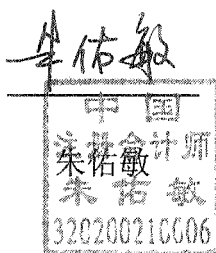 朱佑敏
中国
注册会计师
朱佑敏
朱佑敏
320200210006